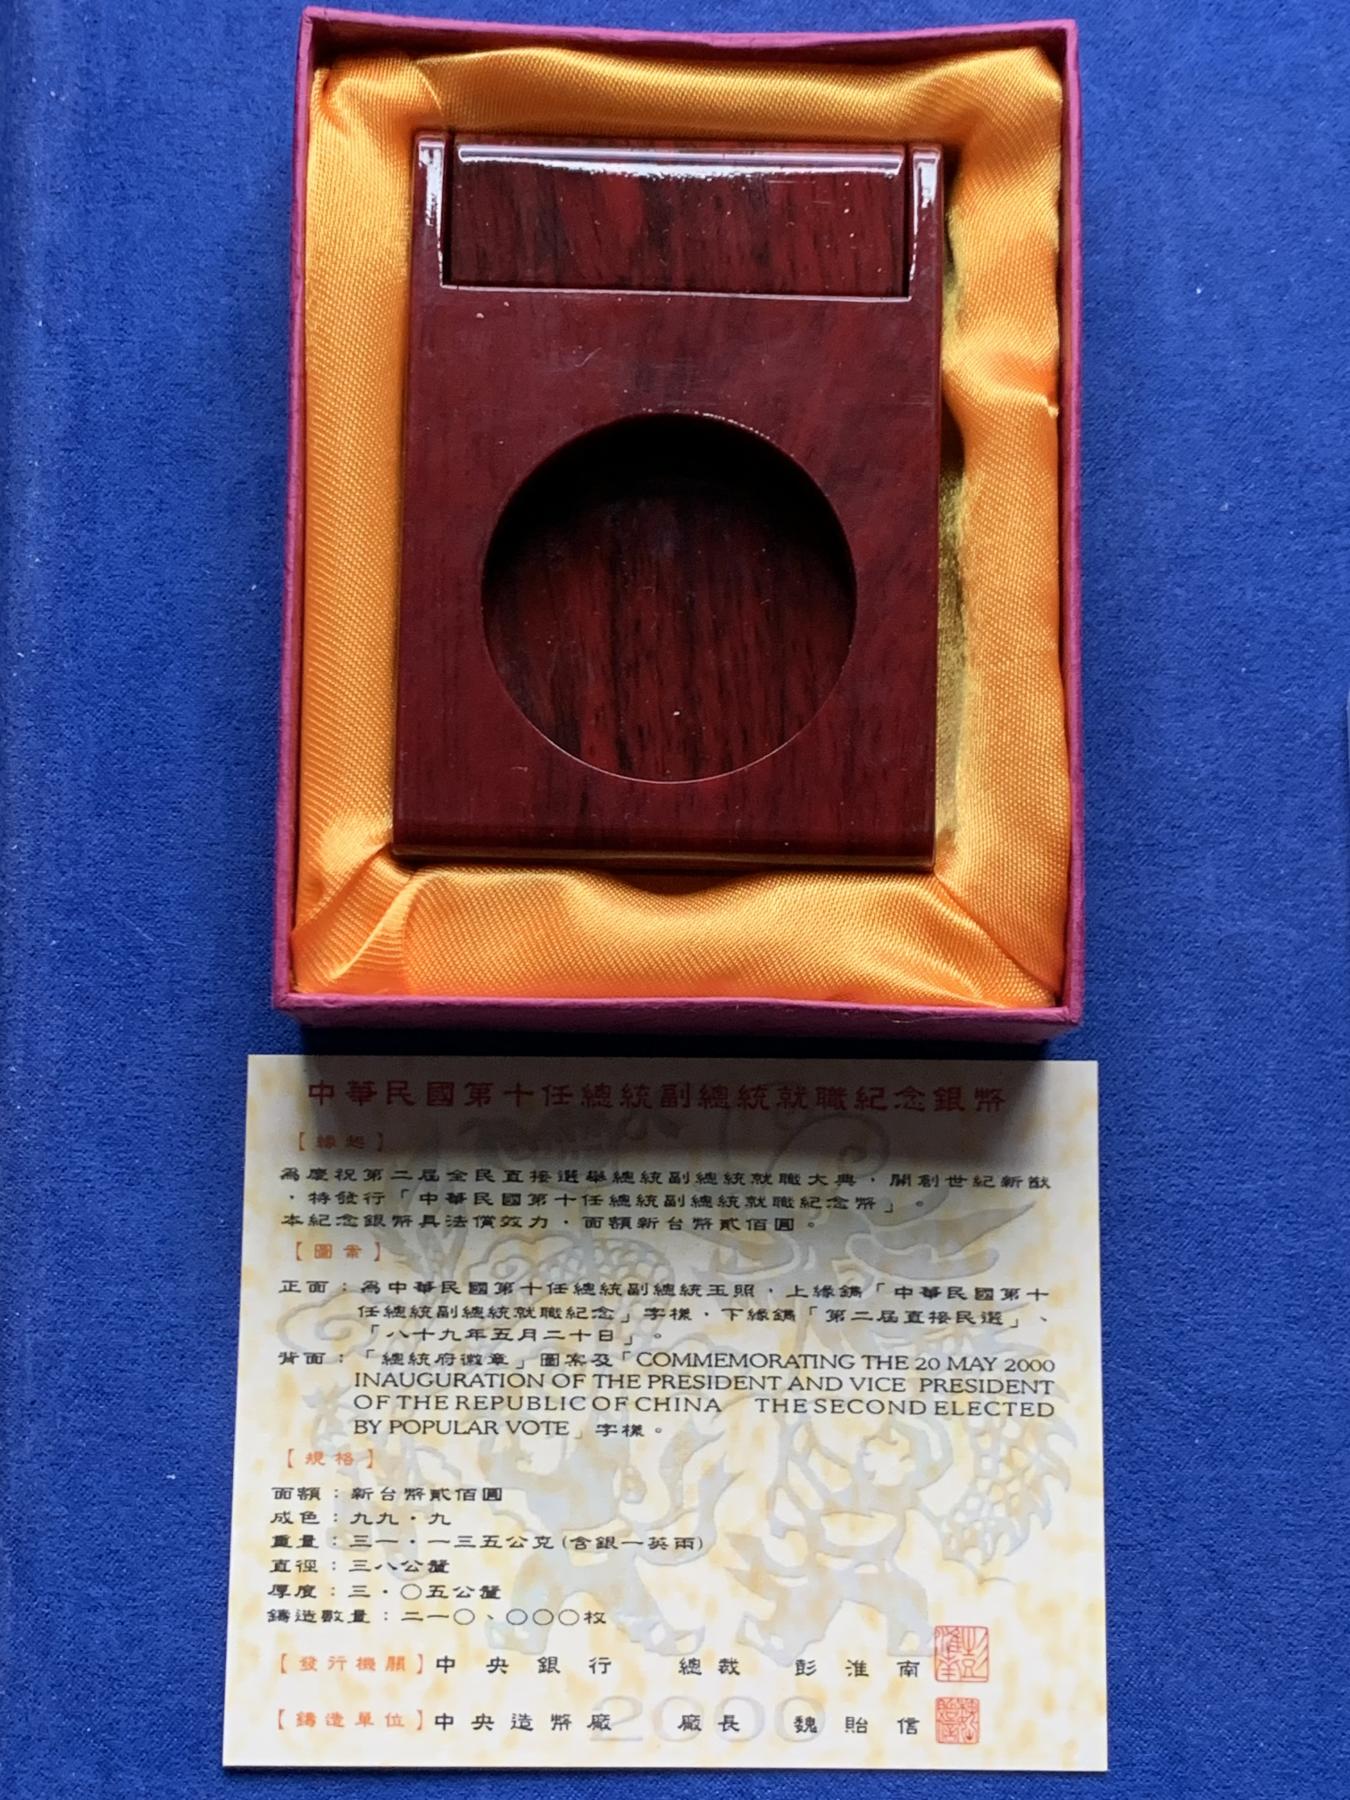 中華民國第十任總統副總統就職紀念銀幣
【緣起】
為慶祝第二屆全民直接選舉總統副總統就職大典，開創世紀新猷
，特發行「中華民國第十任總統副總統就職紀念幣」。
本紀念銀幣具法償效力，面額新台幣貳佰圓。
【圖案】
正面：為中華民國第十任總統副總統玉照，上緣鐫「中華民國第十
任總統副總統就職紀念」字樣，下緣鐫「第二屆直接民選」、
「八十九年五月二十日」。
背面：「總統府徽章」圖案及「COMMEMORATING THE 20 MAY 2000
INAUGURATION OF THE PRESIDENT AND VICE PRESIDENT
OF THE REPUBLIC OF CHINA THE SECOND ELECTED
BY POPULAR VOTE」字樣。
【規格】
面額：新台幣貳佰圓
成色：九九・九
重量：三一・一三五公克(含銀一英兩)
直徑：三八公釐
厚度：三・〇五公釐
鑄造數量：二一〇、〇〇〇枚
【發行機關】中央銀行 總裁 彭淮南
【鑄造單位】中央造幣廠 廠長 魏貽信
2000